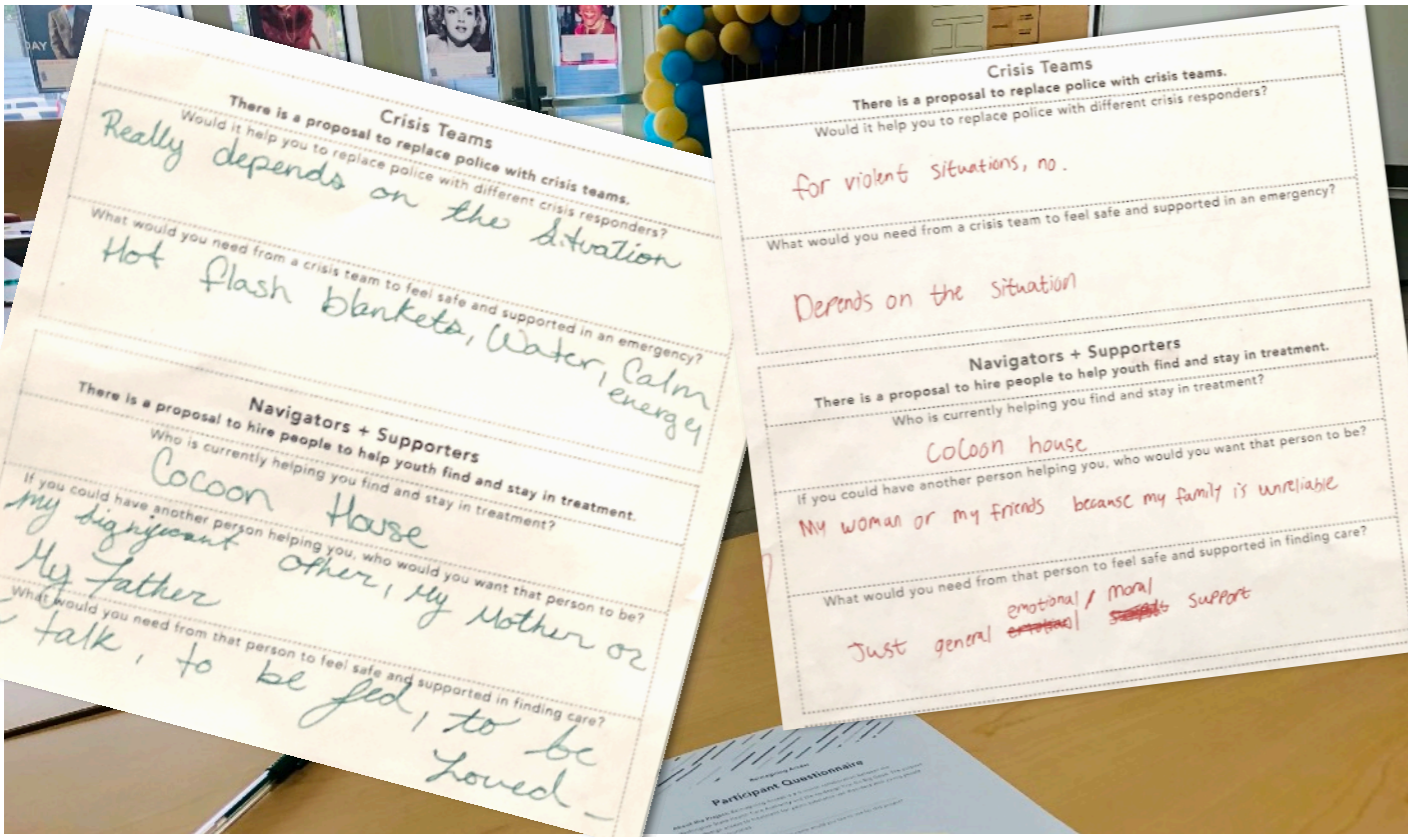 DAY
Crisis Teams
There is a proposal to replace police with crisis teams.
Would it help you to replace police with different crisis responders?
Really depends on the situation
What would you need from a crisis team to feel safe and supported in an emergency?
Hot flash blankets, Water, Calm
energy
Navigators + Supporters
There is a proposal to hire people to help youth find and stay in treatment.
Who is currently helping you find and stay in treatment?
Cocoon House
If you could have another person helping you, who would you want that person to be?
My significant other, My Mother or
My Father
What would you need from that person to feel safe and supported in finding care?
talk, to be fed, to be
Loved
Crisis Teams
There is a proposal to replace police with crisis teams.
Would it help you to replace police with different crisis responders?
for violent situations, no.
What would you need from a crisis team to feel safe and supported in an emergency?
Depends on the situation
Navigators + Supporters
There is a proposal to hire people to help youth find and stay in treatment.
Who is currently helping you find and stay in treatment?
Cocoon house
If you could have another person helping you, who would you want that person to be?
My woman or my friends because my family is unreliable
What would you need from that person to feel safe and supported in finding care?
emotional / moral
Just general support
Participant Questionnaire